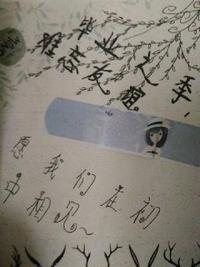 毕业之季，
难舍友谊。
愿我们在初
中相见~